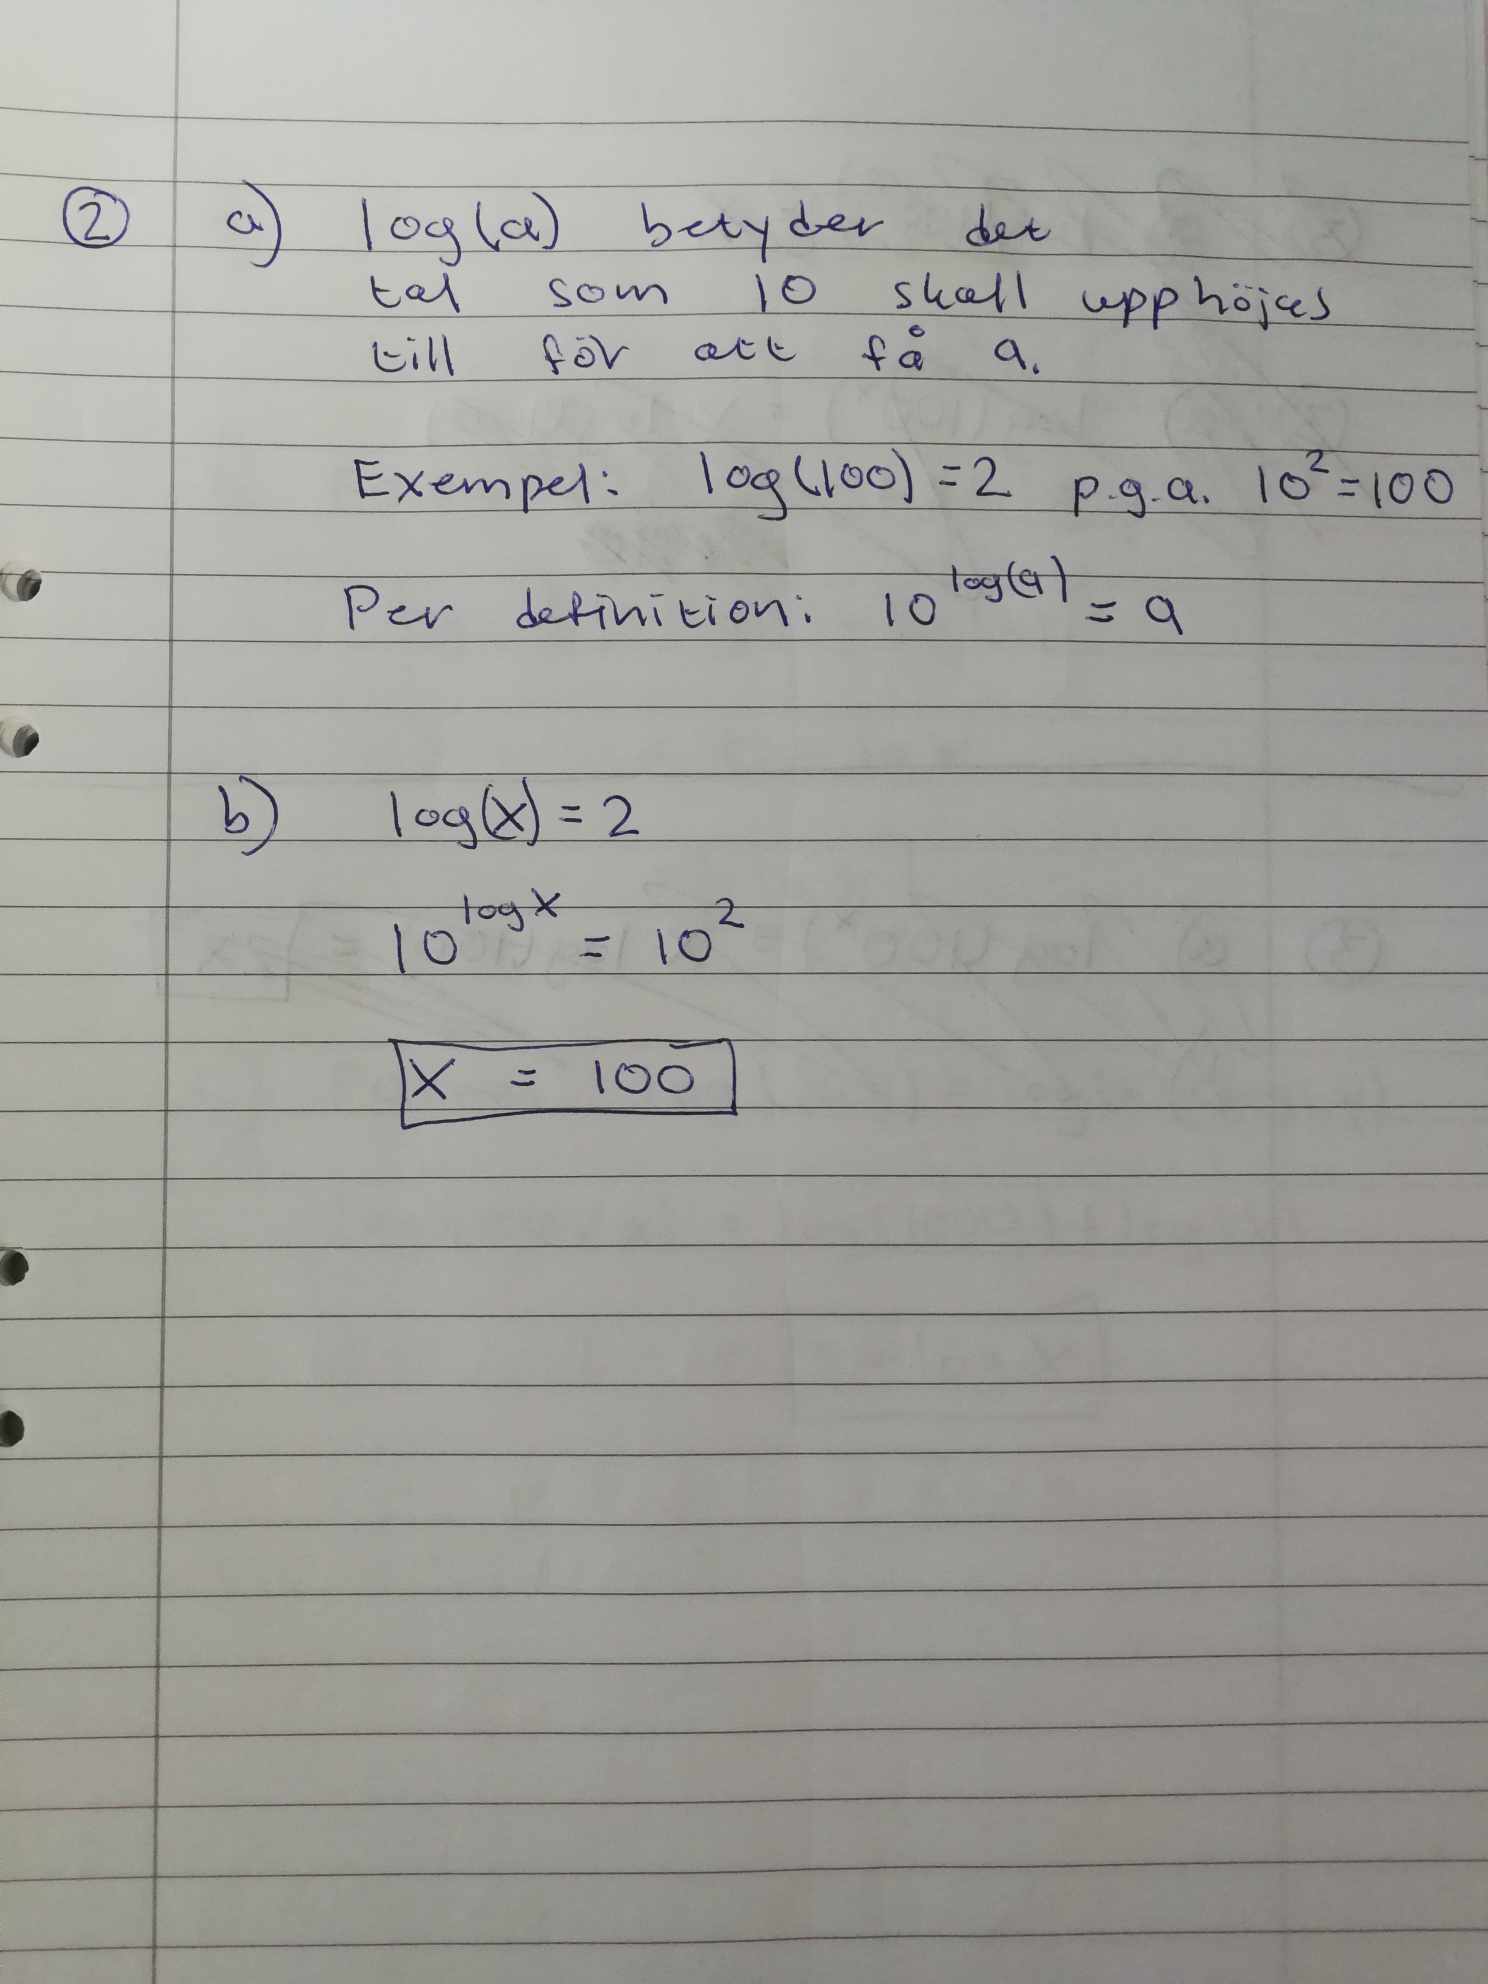 ② a) log(a) betyder det
tal som 10 skall upphöjas
till för att få a.
Exempel: log(100) = 2 p.g.a. 10² = 100
Per definition: 10^log(a) = a
b) log(x) = 2
10^log x = 10²
x = 100